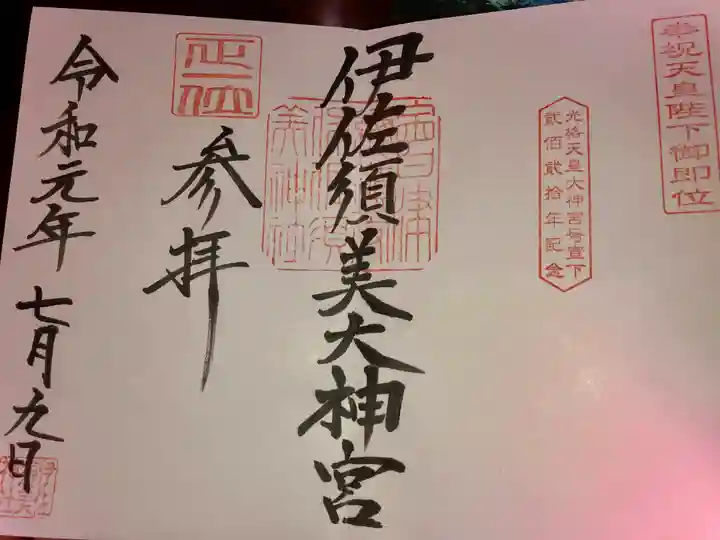 奉祝天皇陛下御即位
光格天皇大神宮号宣下
貳佰貳拾年記念
伊佐須美大神宮
正一位
参拝
令和元年七月九日